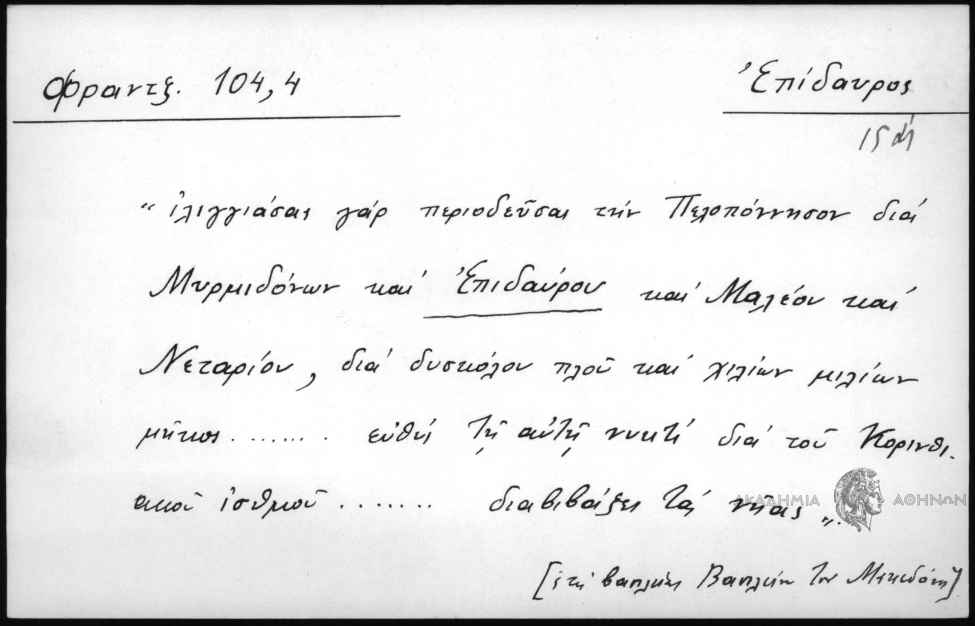 Φραντζ. 104,4
Ἐπίδαυρος
„ ἰλιγγιάσας γάρ περιοδεῦσαι τήν Πελοπόννησον διά
Μυρμιδόνων καί Ἐπιδαύρου καί Μαλέου καί
Νεταρίου, διά δυσκόλου πλοῦ καί χιλίων μιλίων
μῆκος ........ εὐθύς τῇ αὐτῇ νυκτί διά τοῦ Κορινθι-
ακοῦ ἰσθμοῦ ........ διαβιβάζει τάς νῆας „.
ΑΚΑΔΗΜΙΑ ΑΘΗΝΩΝ
Βασιλείου τοῦ Μακεδόνος]